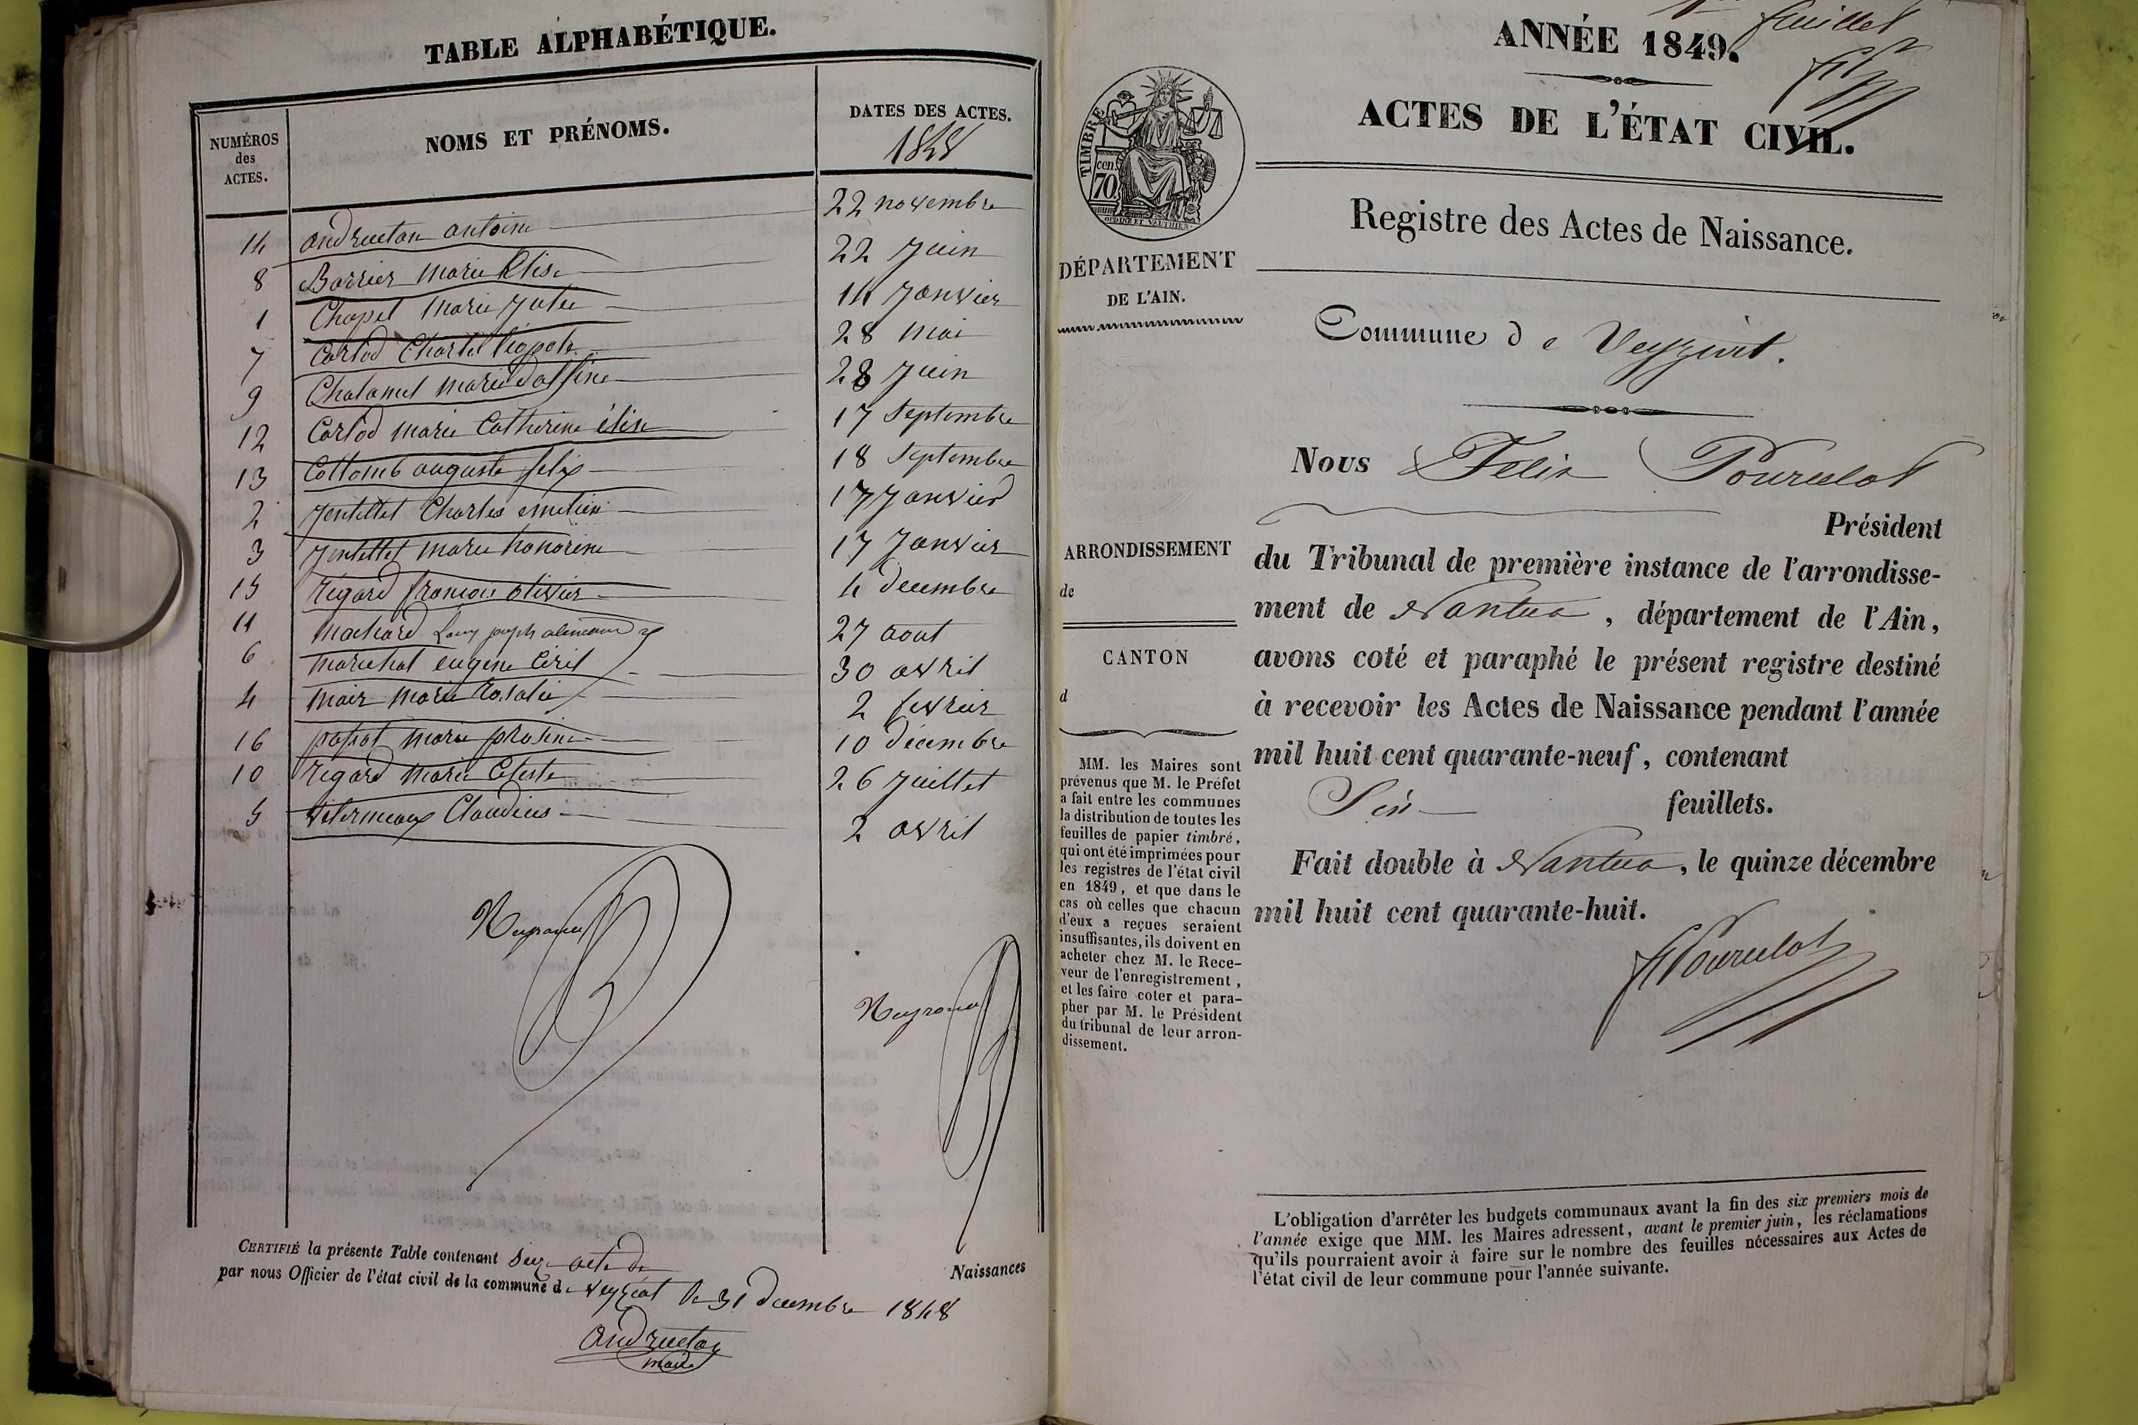 TABLE ALPHABÉTIQUE.
NUMÉROS
des
ACTES.
NOMS ET PRÉNOMS.
DATES DES ACTES.
1848
14 andruetan antoine 22 novembre
8 Barrier marie Elise 22 Juin
1 Chapel marie Julie 14 Janvier
7 Carlod Charles 28 mai
9 Chalamel marie 28 Juin
12 Carlod marie Catherine élise 17 Septembre
13 Collomb auguste felix 18 Septembre
2 Jentillet Charles emilien 17 Janvier
3 Jentillet marie honorine 17 Janvier
15 Régard françois olivier 4 decembre
11 machard Louis joseph 27 aout
6 marechal eugène Ciril 30 avril
4 mair marie Rosalie 2 fevrier
16 marie 10 decembre
10 Régard marie Celeste 26 Juillet
5 Claudius 2 avril
CERTIFIÉ la présente Table contenant acte de Naissances
par nous Officier de l'état civil de la commune de Veyziat le 31 decembre 1848
andruetan
maire
feuillet
ANNÉE 1849.
ACTES DE L'ÉTAT CIVIL.
TIMBRE
cen.
70
Registre des Actes de Naissance.
DÉPARTEMENT
DE L'AIN.
Commune de Veyziat.
Nous Felix Pourcelot
Président
du Tribunal de première instance de l'arrondisse-
ment de Nantua, département de l'Ain,
avons coté et paraphé le présent registre destiné
à recevoir les Actes de Naissance pendant l'année
mil huit cent quarante-neuf, contenant
Six feuillets.
Fait double à Nantua, le quinze décembre
mil huit cent quarante-huit.
F Pourcelot
ARRONDISSEMENT
de
CANTON
d
MM. les Maires sont
prévenus que M. le Préfet
a fait entre les communes
la distribution de toutes les
feuilles de papier timbré,
qui ont été imprimées pour
les registres de l'état civil
en 1849, et que dans le
cas où celles que chacun
d'eux a reçues seraient
insuffisantes, ils doivent en
acheter chez M. le Rece-
veur de l'enregistrement,
et les faire coter et para-
pher par M. le Président
du tribunal de leur arron-
dissement.
L'obligation d'arrêter les budgets communaux avant la fin des six premiers mois de
l'année exige que MM. les Maires adressent, avant le premier juin, les réclamations
qu'ils pourraient avoir à faire sur le nombre des feuilles nécessaires aux Actes de
l'état civil de leur commune pour l'année suivante.